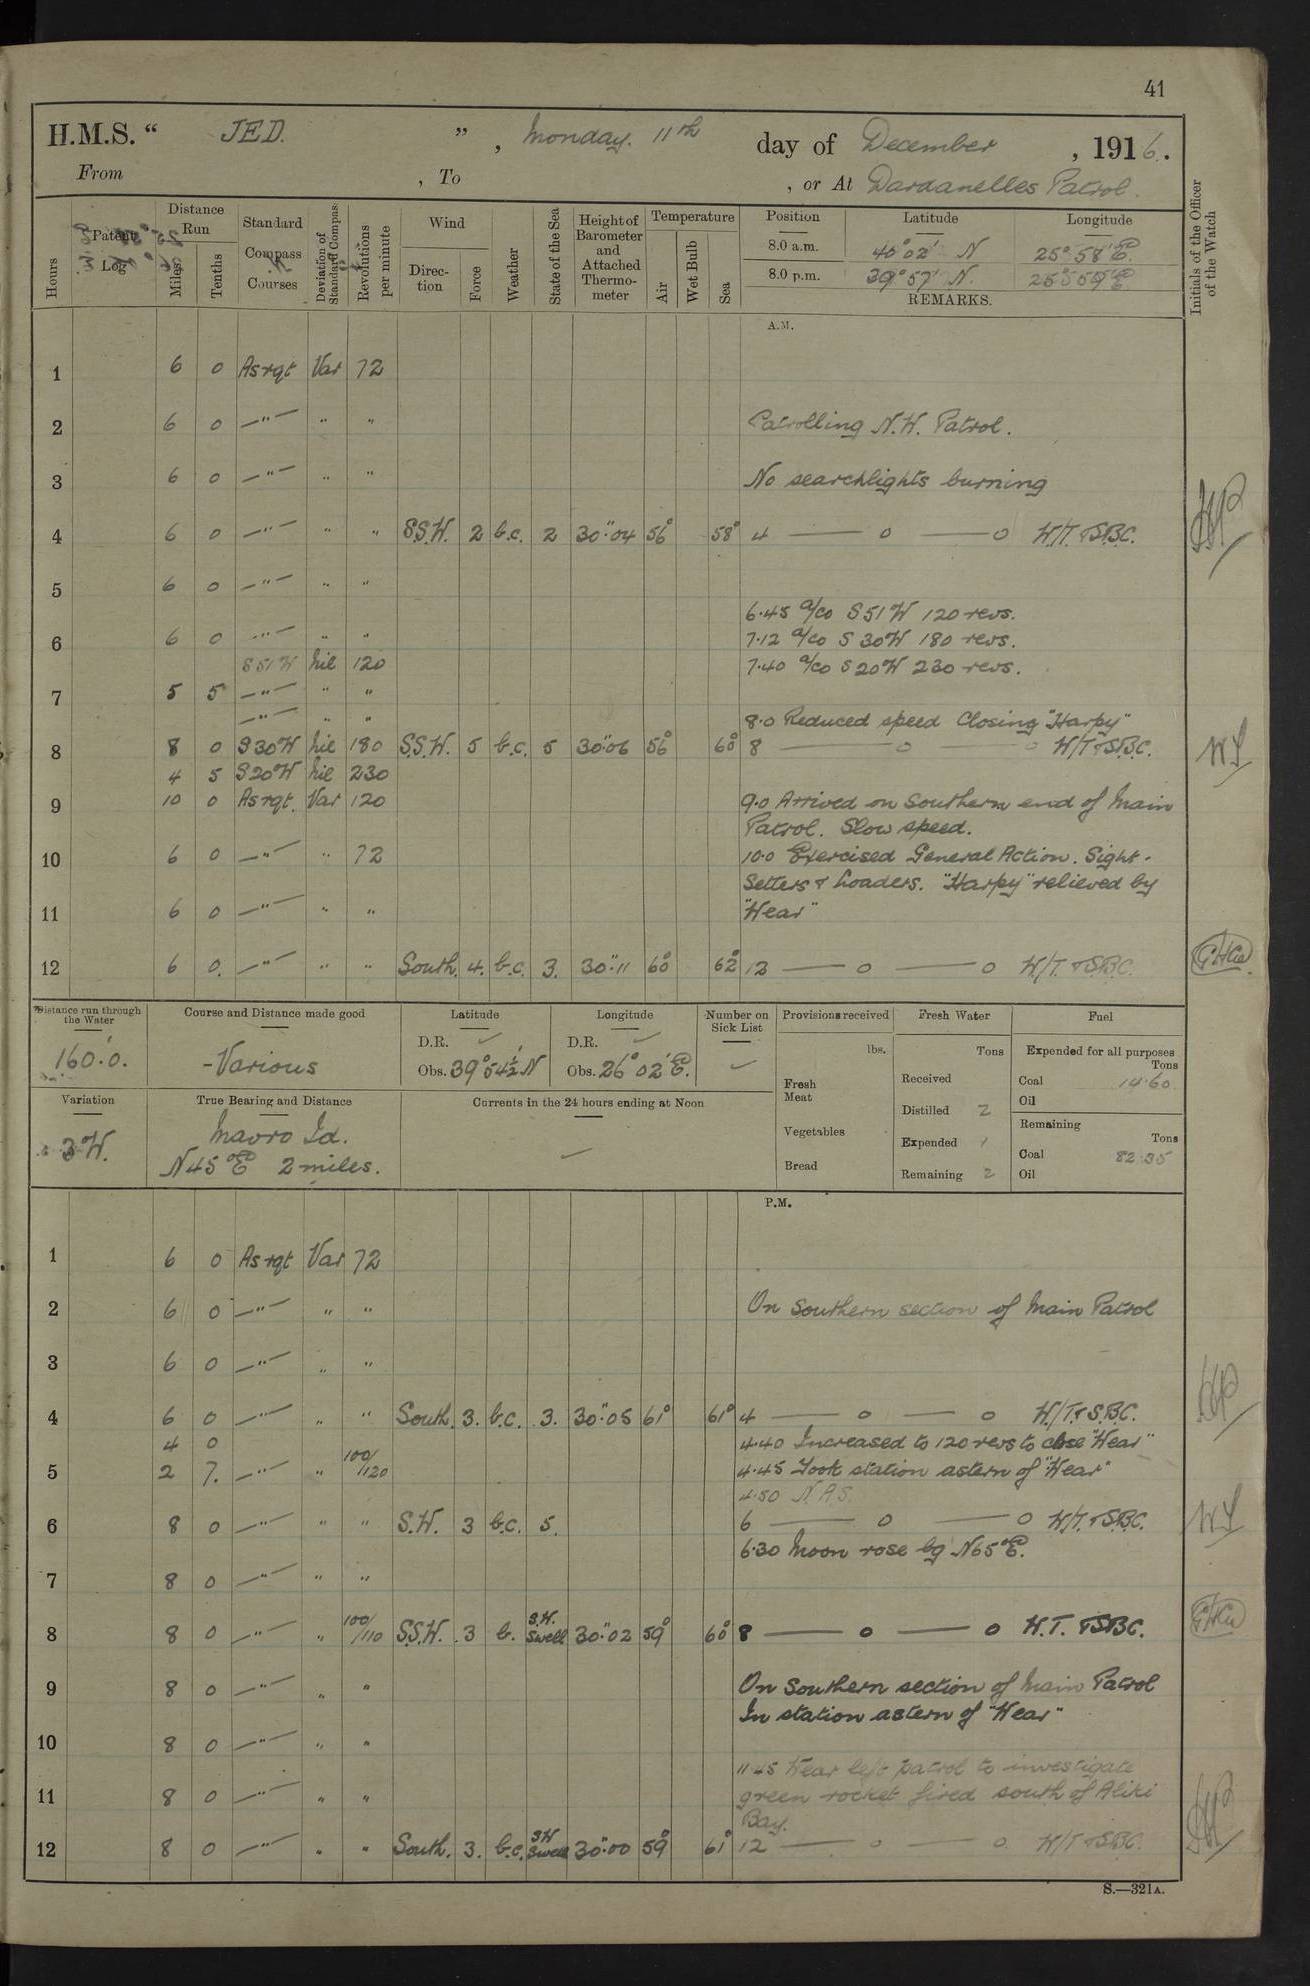 41
H.M.S. " JED. " , Monday. 11th day of December , 1916.
From , To , or At Dardanelles Patrol.
Hours Patent Log Distance Run Miles Tenths Standard Compass Courses Deviation of Standard Compass Revolutions per minute Wind Direction Force Weather State of the Sea Height of Barometer and Attached Thermometer Temperature Air Wet Bulb Sea Position Latitude Longitude Initials of the Officer of the Watch
8.0 a.m. 40° 02' N 25° 58' E.
8.0 p.m. 39° 57' N. 25° 59' E.
REMARKS.
A.M.
1 6 0 As rqt Var 72
2 6 0 —"— " " Patrolling N.W. Patrol.
3 6 0 —"— " " No searchlights burning
4 6 0 —"— " " S.S.W. 2 b.c. 2 30".04 56° 58° 4 —— o —— o W/T. & S.B.C.
5 6 0 —"— " "
6.45 a/co S 51 W 120 revs.
6 6 0 —"— " " 7.12 a/co S 30 W 180 revs.
S 51 W Nil 120 7.40 a/co S 20 W 230 revs.
7 5 5 —"— " "
—"— " " 8.0 Reduced speed Closing "Harpy"
8 8 0 S 30 W Nil 180 S.S.W. 5 b.c. 5 30".06 56° 60° 8 —— o —— o W/T & S.B.C.
4 5 S 20° W Nil 230
9 10 0 As rqt. Var 120 9.0 Arrived on Southern end of Main
Patrol. Slow speed.
10 6 0 —"— " 72 10.0 Exercised General Action. Sight-
Setters & Loaders. "Harpy" relieved by
11 6 0 —"— " " "Wear"
12 6 0. —"— " " South. 4. b.c. 3. 30".11 60° 62° 12 —— o —— o W/T. & S.B.C.
Distance run through the Water Course and Distance made good Latitude Longitude Number on Sick List Provisions received Fresh Water Fuel
160'.0. -Various D.R. Obs. 39° 54½' N D.R. Obs. 26° 02' E.
lbs. Tons Expended for all purposes Tons
Fresh Meat Received Coal 14.60
Oil
Variation True Bearing and Distance Currents in the 24 hours ending at Noon
Distilled 2 Remaining Tons
3° W. Mavro Id. Vegetables Expended 1 Coal 82.35
N 45° E 2 miles. Bread Remaining 2 Oil
P.M.
1 6 0 As rqt Var 72
2 6 0 —"— " " On Southern section of Main Patrol
3 6 0 —"— " "
4 6 0 —"— " " South. 3. b.c. 3. 30".05 61° 61° 4 —— o —— o W/T. & S.B.C.
4 0 4.40 Increased to 120 revs to close "Wear"
5 2 7. —"— " 100/120 4.45 Took station astern of "Wear"
4.50 N.A.S.
6 8 0 —"— " " S.W. 3 b.c. 5. 6 —— o —— o W/T. & S.B.C.
6.30 Moon rose bg N 65° E.
7 8 0 —"— " "
8 8 0 —"— " 100/110 S.S.W. 3 b. S.W. Swell 30".02 59° 60° 8 —— o —— o W.T. & S.B.C.
9 8 0 —"— " " On Southern section of Main Patrol
In station astern of "Wear"
10 8 0 —"— " "
11.45 Wear left patrol to investigate
11 8 0 —"— " " green rocket fired south of Aliki
Bay.
12 8 0 —"— " " South. 3. b.c. S.W Swell 30".00 59° 61° 12 —— o —— o W/T & S.B.C.
S.—321A.